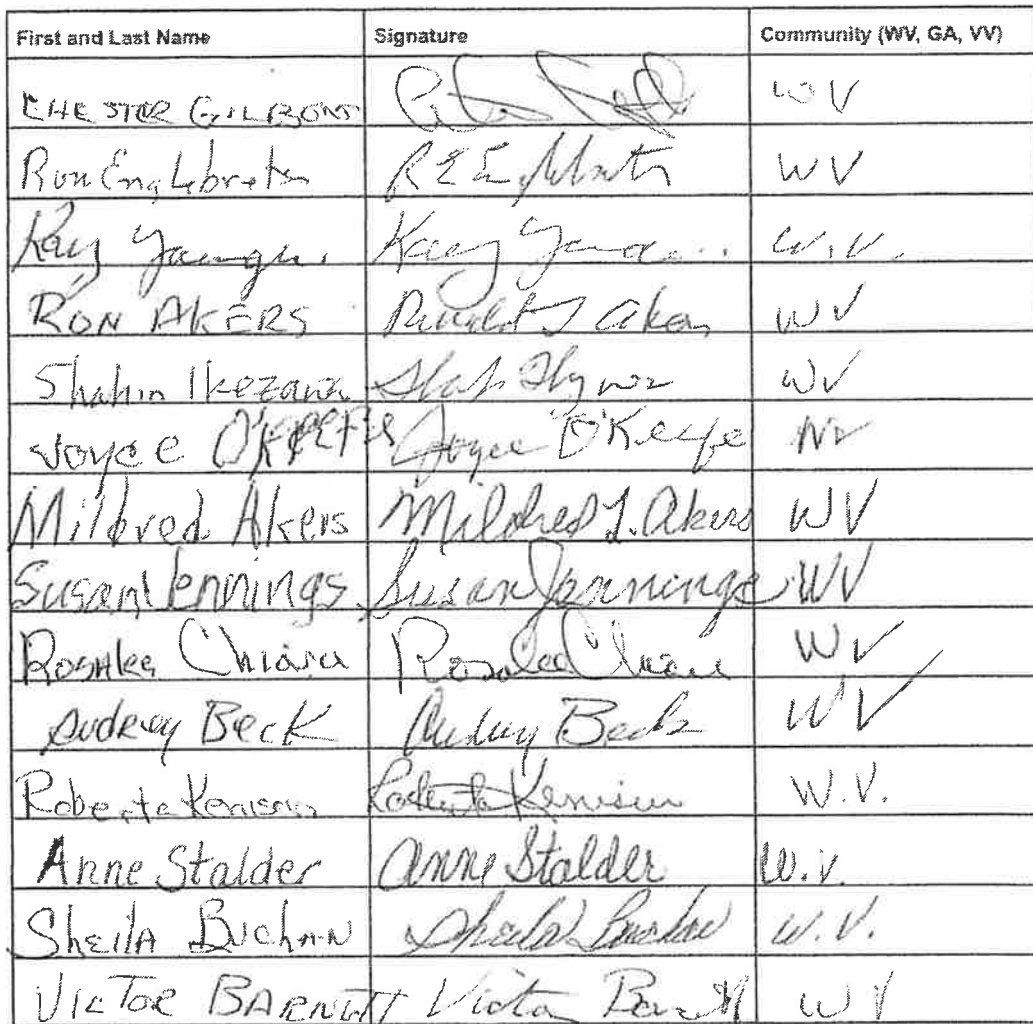 First and Last Name Signature Community (WV, GA, VV)
CHESTER WV
Ron WV
W.V.
RON AKERS Akers WV
Shahin Ikezawa WV
Joyce O'KEEFE Joyce O'Keefe
Mildred Akers Mildred L. Akers WV
Susan Jennings Susan Jennings WV
Rosalee Chiara Rosalee Chiara WV
Audrey Beck Audrey Beck WV
Roberta Kenison Roberta Kenison W.V.
Anne Stalder Anne Stalder W.V.
Sheila Buchan Sheila Buchan W.V.
VICTOR BARNETT Victor Barnett WV